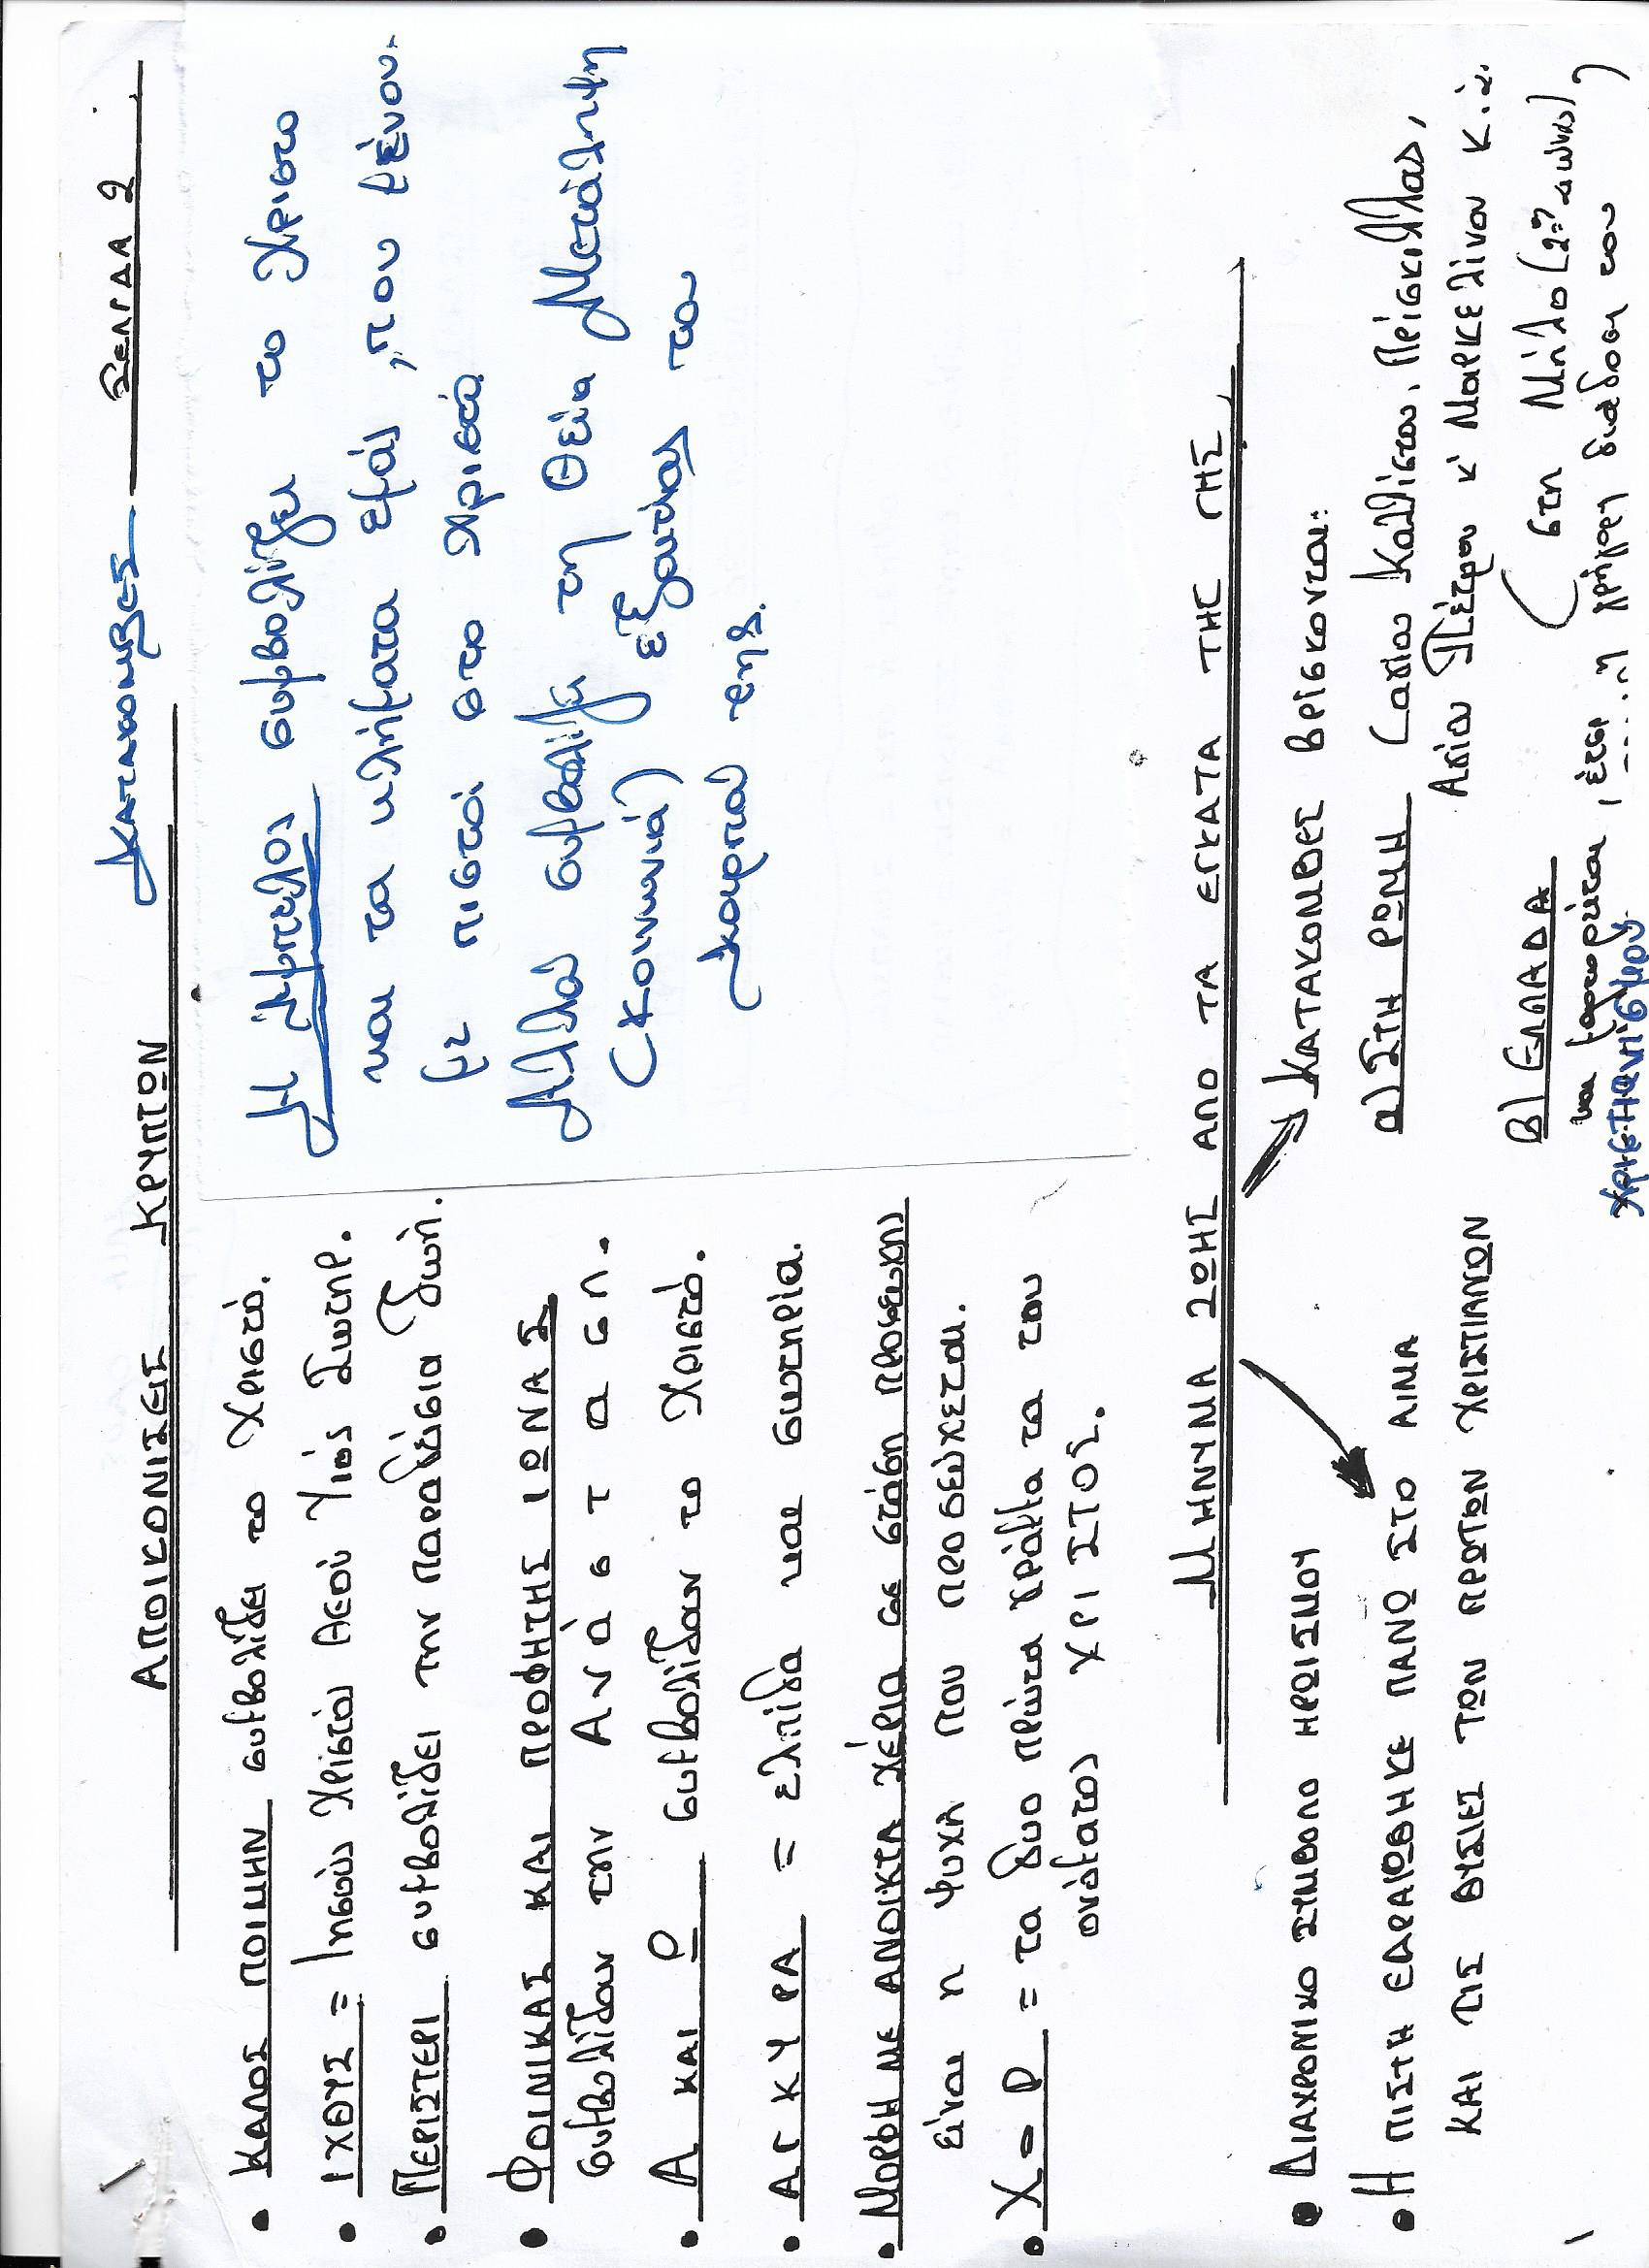 ΚΑΤΑΚΟΜΒΕΣ ΣΕΛΙΔΑ 2
ΑΠΟΙΚΟΝΙΣΕΙΣ ΚΡΥΠΤΩΝ
• ΚΑΛΟΣ ΠΟΙΜΗΝ συμβολίζει το Χριστό.
• ΙΧΘΥΣ = Ιησούς Χριστός Θεού Υιός Σωτηρ.
• ΠΕΡΙΣΤΕΡΙ συμβολίζει την παραδείσια ζωή.
• ΦΟΙΝΙΚΑΣ ΚΑΙ ΠΡΟΦΗΤΗΣ ΙΩΝΑΣ
συμβολίζουν την Ανάσταση.
• Α ΚΑΙ Ω συμβολίζουν το Χριστό.
• ΑΓΚΥΡΑ = ελπίδα και σωτηρία.
• ΜΟΡΦΗ ΜΕ ΑΝΟΙΚΤΑ χέρια σε στάση προσευχής
είναι η ψυχή που προσεύχεται.
• Χ = Ρ = τα δυο πρώτα γράμματα του
ονόματος ΧΡΙΣΤΟΣ.
Η άμπελος συμβολίζει το Χριστο
και τα κλήματα εμάς, που μένου-
με πιστοί στο Χριστό.
Αλλού συμβολίζει τη Θεία Μετάληψη
(κοινωνιά) εξ αιτίας του
καρπού της.
ΜΗΝΥΜΑ ΖΩΗΣ ΑΠΟ ΤΑ ΕΓΚΑΤΑ ΤΗΣ ΓΗΣ
• ΔΙΑΧΡΟΝΙΚΟ ΣΥΜΒΟΛΟ ΗΡΩΙΣΜΟΥ
• Η ΠΙΣΤΗ ΕΔΡΑΙΩΘΗΚΕ ΠΑΝΩ ΣΤΟ ΑΙΜΑ
ΚΑΙ ΤΙΣ ΘΥΣΙΕΣ ΤΩΝ ΠΡΩΤΩΝ ΧΡΙΣΤΙΑΝΩΝ
ΚΑΤΑΚΟΜΒΕΣ βρίσκονται:
α) ΣΤΗ ΡΩΜΗ (αγίου Καλλίστου, Πρίσκιλλας,
Αγίου Πέτρου κ' Μαρκελίνου κ.ά.
Β) ΕΛΛΑΔΑ (στη Μήλο (2ος αιώνας)
και μαρτυρείται, έτσι ....η γρήγορη διάδοση του
ΧΡΙΣΤΙΑΝΙΣΜΟΥ